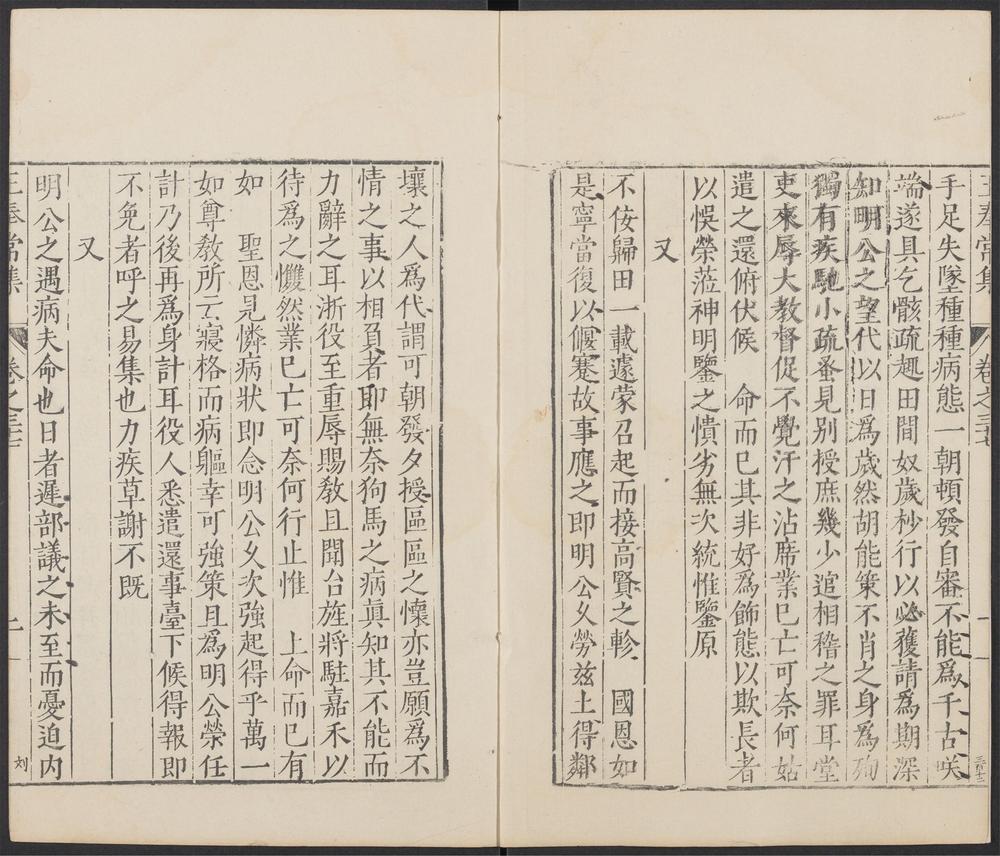 王奉常集 卷之三十七 一
手足失墜種種病態一朝頓發自審不能為千古咲
端遂具乞骸疏趣田間奴歲杪行以必獲請為期深
知明公之望代以日為歲然胡能策不肖之身為殉
獨有疾馳小疏蚤見別授庶幾少逭相稽之罪耳堂
吏來辱大教督促不覺汗之沾席業已亡可奈何姑
遣之還俯伏候　命而已其非好為飾態以欺長者
以悞榮蒞神明鑒之憒劣無次統惟鑒原
又
不佞歸田一載遽蒙召起而接高賢之軫　國恩如
是寧當復以偃蹇故事應之即明公乆勞茲土得鄰
壤之人為代謂可朝發夕授區區之懷亦豈願為不
情之事以相負者耶無奈狗馬之病真知其不能而
力辭之耳浙役至重辱賜教且聞台旌將駐嘉禾以
待為之戁然業已亡可奈何行止惟　上命而已有
如　聖恩見憐病狀即念明公乆次強起得乎萬一
如尊教所云寢格而病軀幸可強策且為明公榮任
計乃後再為身計耳役人悉遣還事臺下候得報即
不免者呼之易集也力疾草謝不既
又
明公之遇病夫命也日者遲部議之未至而憂迫内
王奉常集 卷之三十七 二 刘